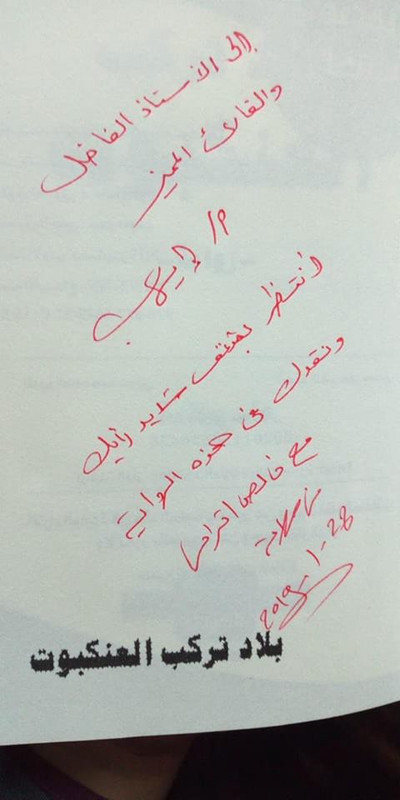 إلى الأستاذ الفاضل
والقارئ المميز
م/ إيهاب
انتظر بشغف شديد رأيك
ونقدك في هذه الرواية
مع خالص احترامي
28-1-2019
بلاد تركب العنكبوت